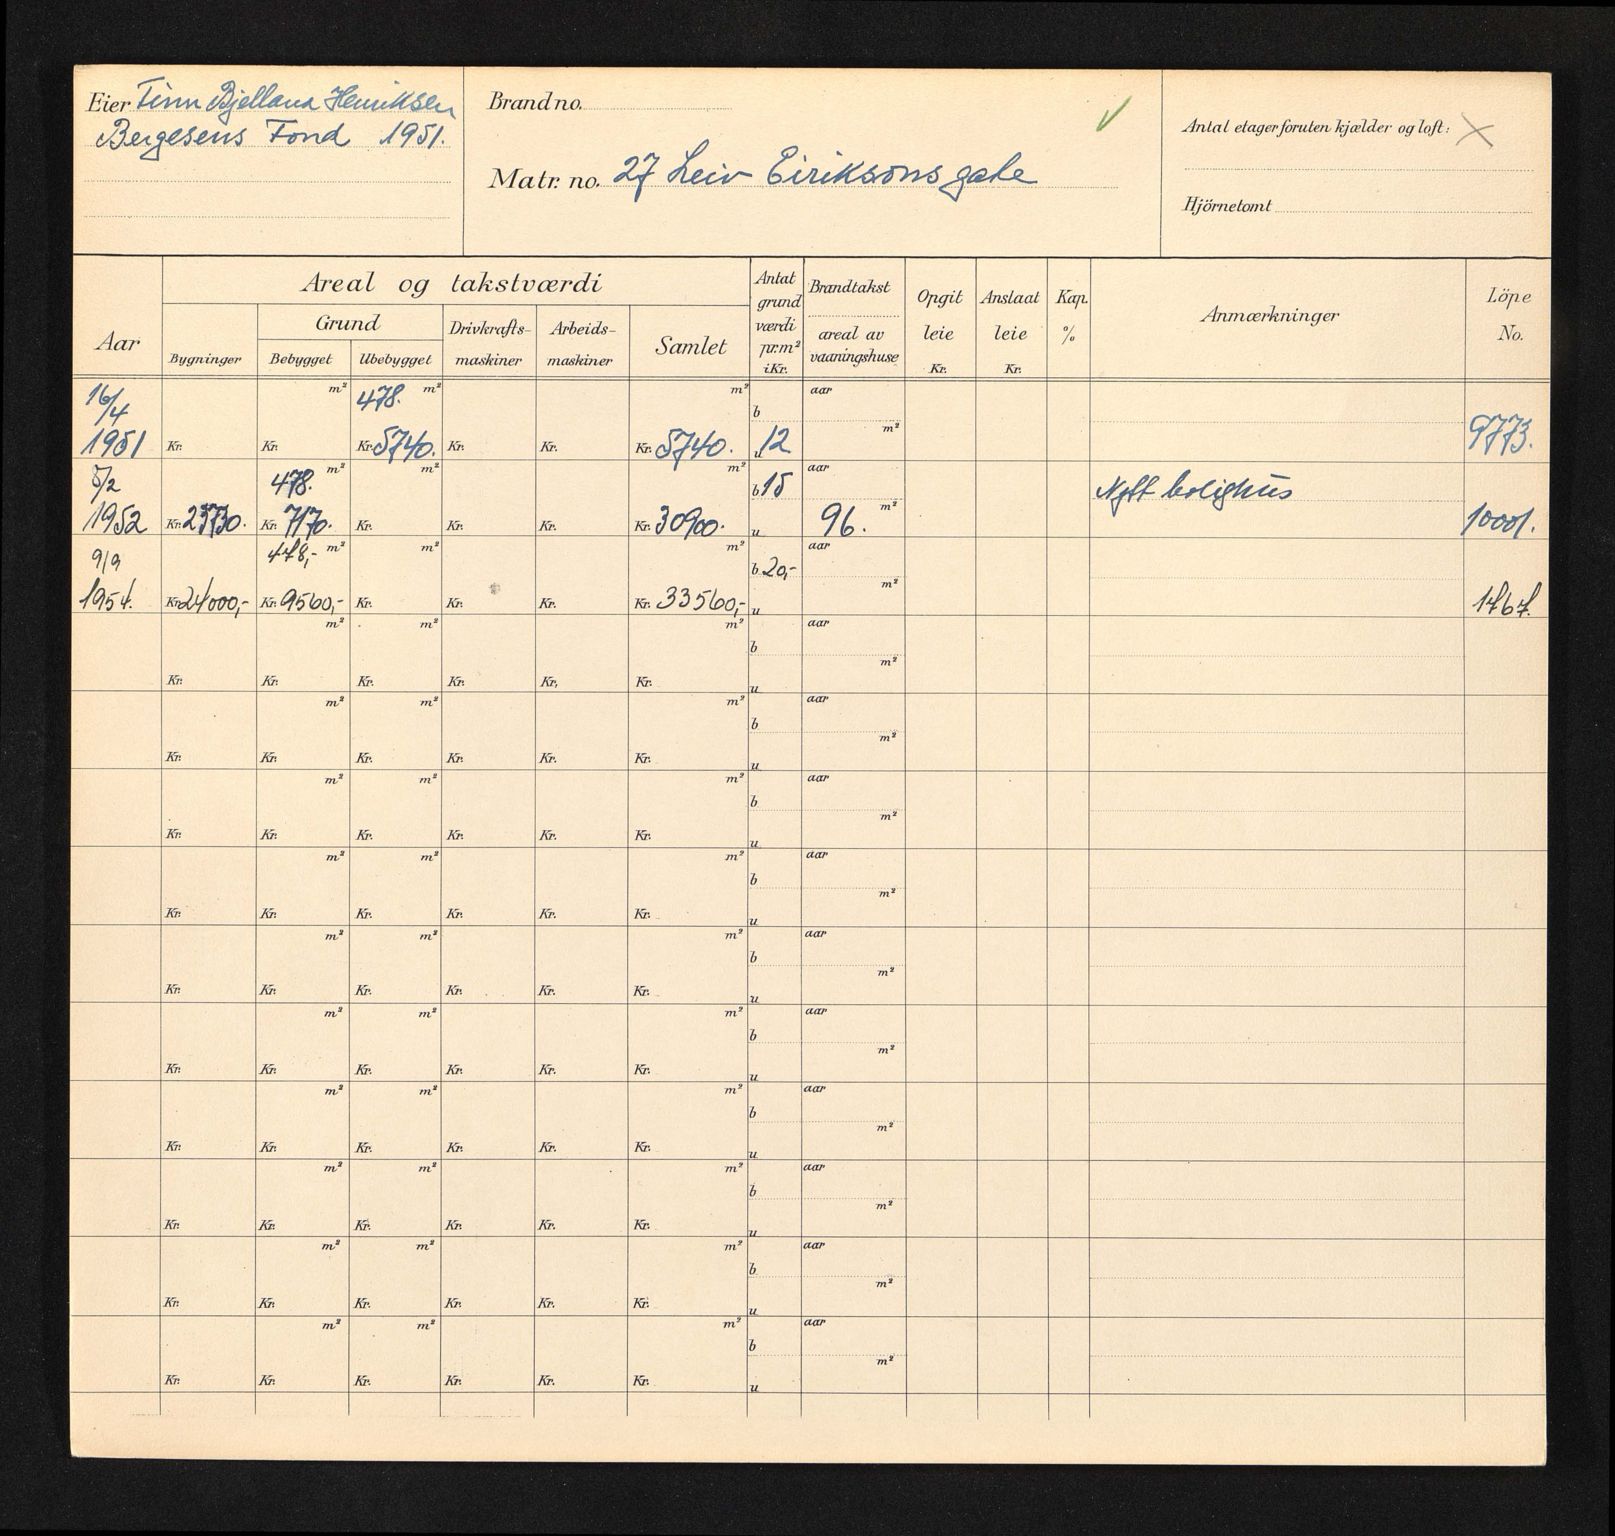 Eier Finn Bjelland Henriksen
Bergesens Fond 1951.
Brand no.
Matr. no. 27 Leiv Eiriksons gate
Antal etager foruten kjælder og loft:
Hjörnetomt
Aar
Areal og takstværdi
Grund
Bygninger
Bebygget
Ubebygget
Drivkrafts-
maskiner
Arbeids-
maskiner
Samlet
Antat
grund
værdi
pr. m²
i Kr.
Brandtakst
areal av
vaaningshuse
Opgit
leie
Kr.
Anslaat
leie
Kr.
Kap.
%
Anmærkninger
Löpe
No.
16/4 m² 478. m² m² b aar
1951 Kr. Kr. Kr. 5740. Kr. Kr. Kr. 5740. u 12 m² 9773.
5/2 478. m² m² m² b 15 aar Nytt bolighus
1952 Kr. 23730. Kr. 7170. Kr. Kr. Kr. Kr. 30900. u 96. m² 10001.
9/9 478,- m² m² m² b 20,- aar
1954. Kr. 24000,- Kr. 9560,- Kr. Kr. Kr. Kr. 33560,- u m² 1467.
m² m² m² b aar
Kr. Kr. Kr. Kr. Kr. Kr. u m²
m² m² m² b aar
Kr. Kr. Kr. Kr. Kr. Kr. u m²
m² m² m² b aar
Kr. Kr. Kr. Kr. Kr. Kr. u m²
m² m² m² b aar
Kr. Kr. Kr. Kr. Kr. Kr. u m²
m² m² m² b aar
Kr. Kr. Kr. Kr. Kr. Kr. u m²
m² m² m² b aar
Kr. Kr. Kr. Kr. Kr. Kr. u m²
m² m² m² b aar
Kr. Kr. Kr. Kr. Kr. Kr. u m²
m² m² m² b aar
Kr. Kr. Kr. Kr. Kr. Kr. u m²
m² m² m² b aar
Kr. Kr. Kr. Kr. Kr. Kr. u m²
m² m² m² b aar
Kr. Kr. Kr. Kr. Kr. Kr. u m²